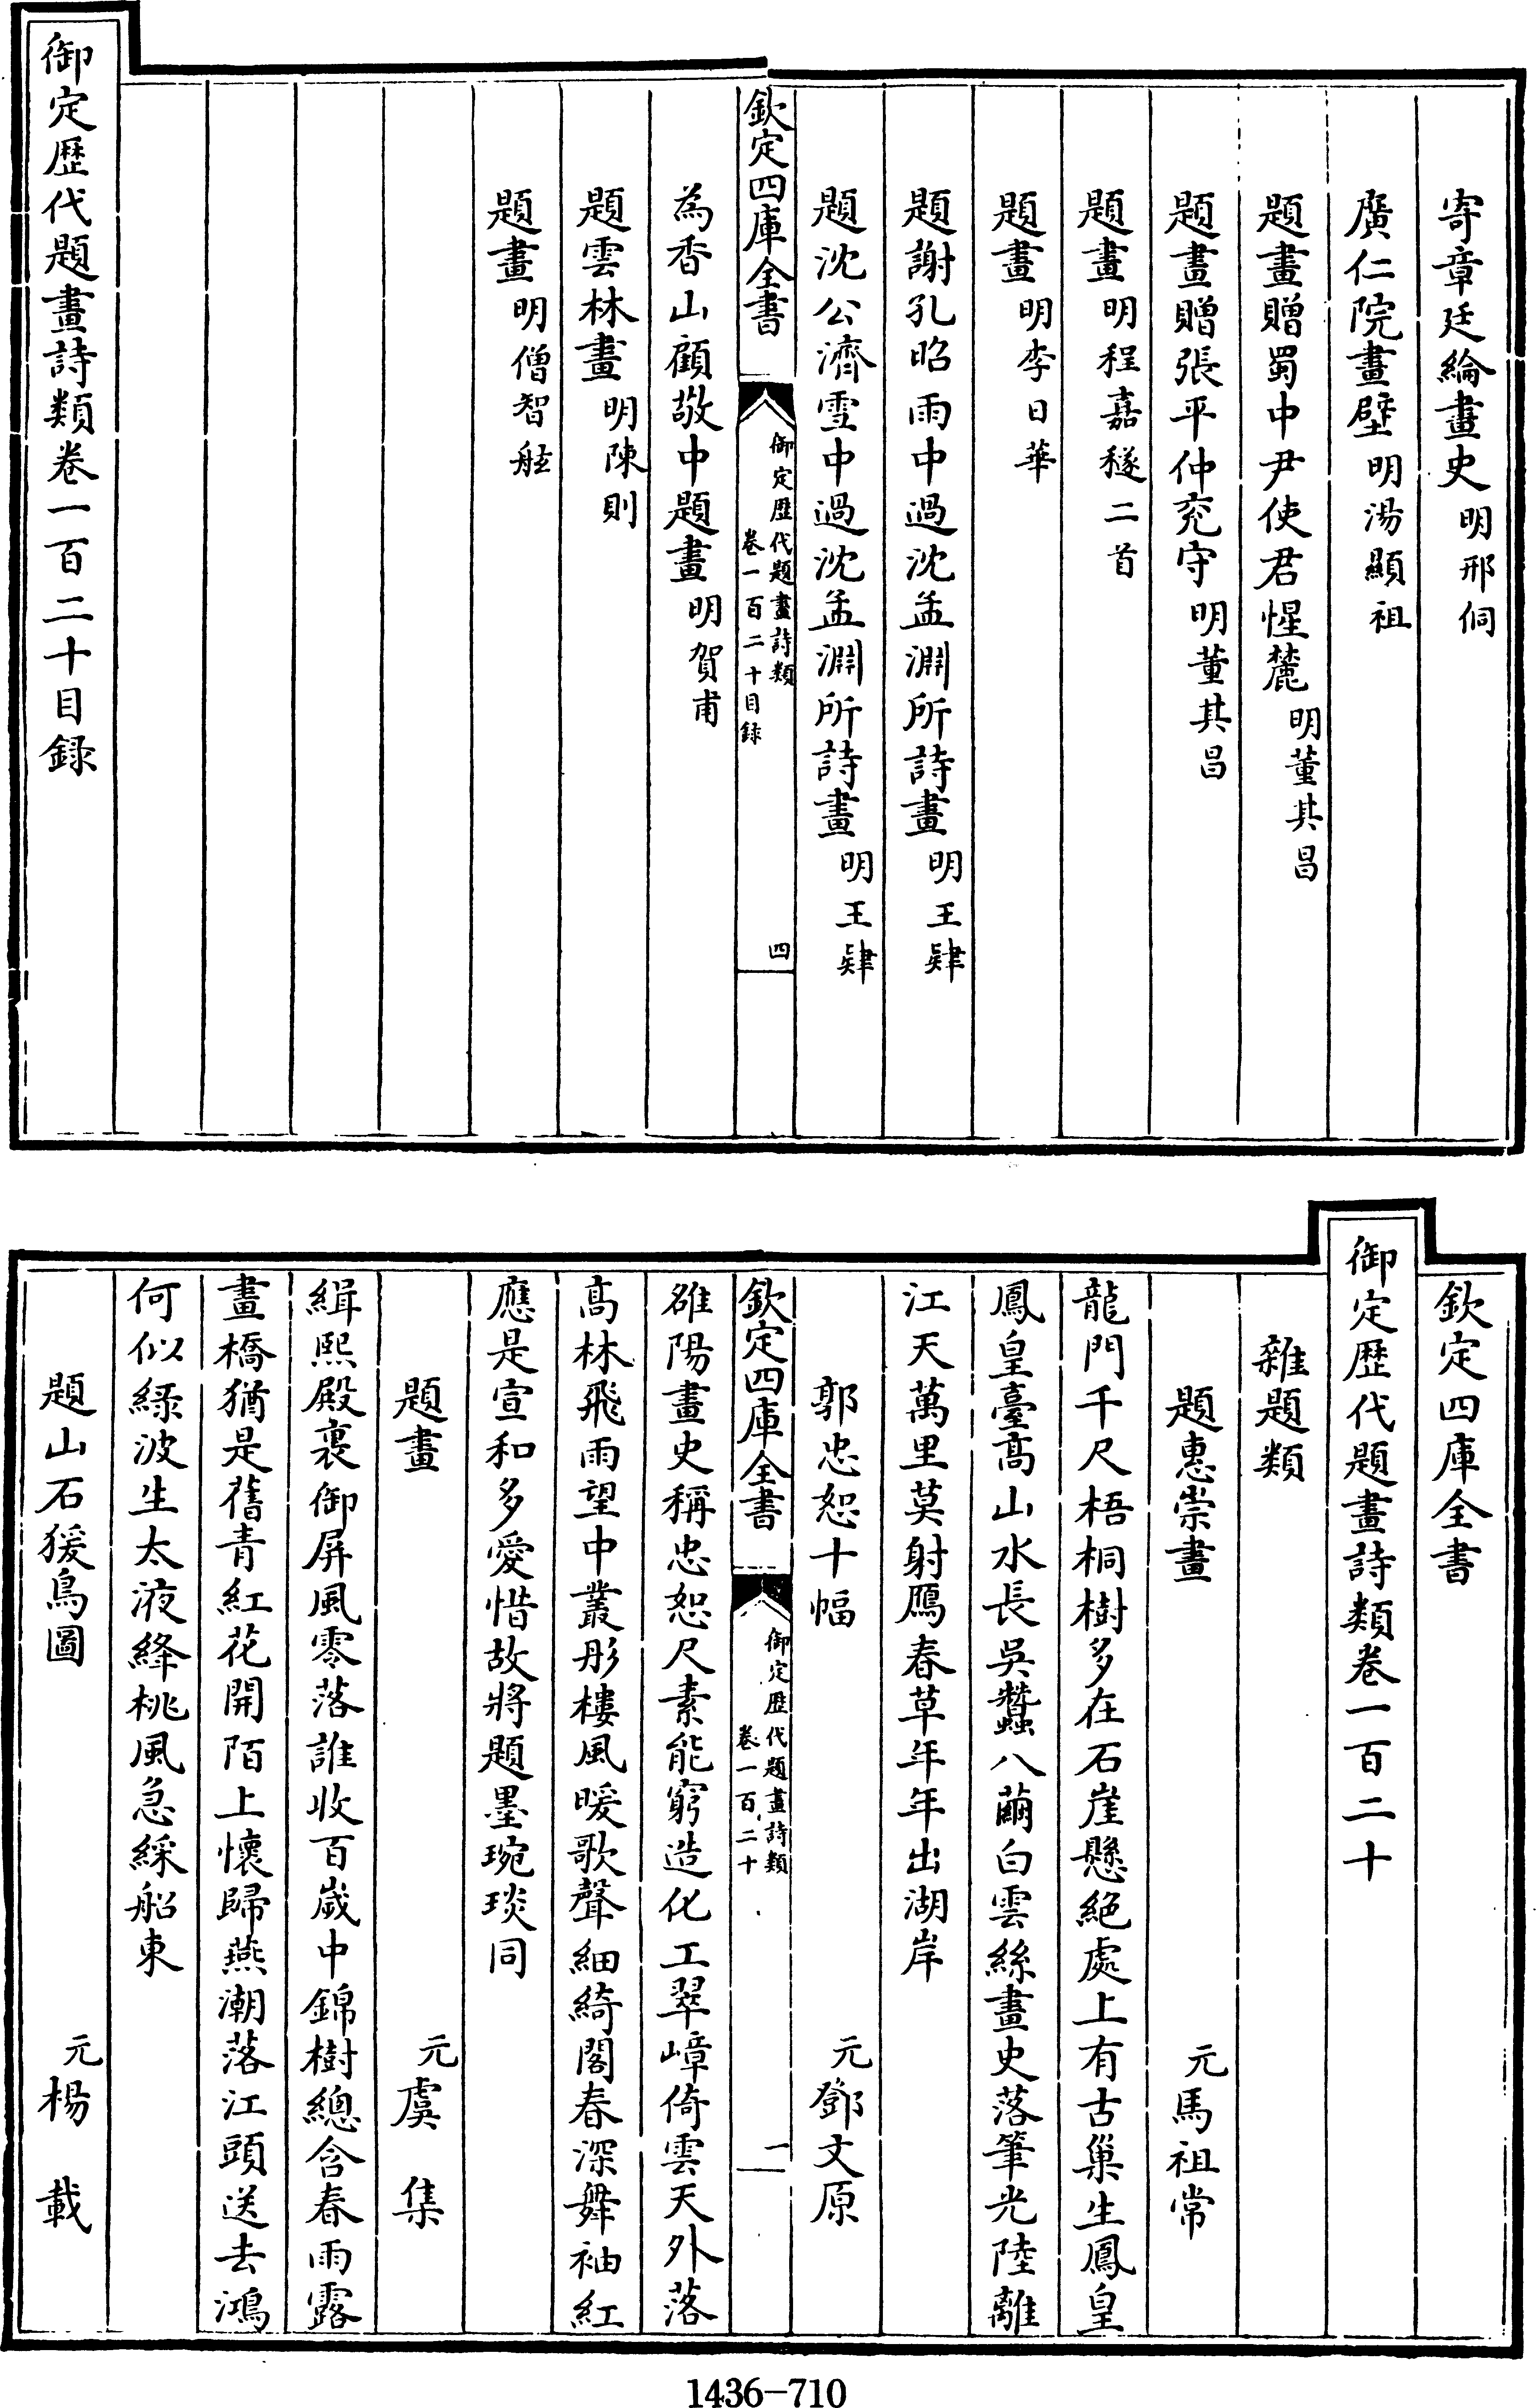 寄章廷綸畫史 明邢侗
廣仁院畫壁 明湯顯祖
題畫贈蜀中尹使君惺麓 明董其昌
題畫贈張平仲兖守 明董其昌
題畫 明程嘉燧二首
題畫 明李日華
題謝孔昭雨中過沈孟淵所詩畫 明王肄
題沈公濟雪中過沈孟淵所詩畫 明王肄
欽定四庫全書
御定歴代題畫詩類
卷一百二十目録
四
為香山顧敬中題畫 明賀甫
題雲林畫 明陳則
題畫 明僧智舷
御定歴代題畫詩類卷一百二十目録
欽定四庫全書
御定歴代題畫詩類卷一百二十
雜題類
題惠崇畫 元馬祖常
龍門千尺梧桐樹多在石崖懸絶處上有古巢生鳳皇
鳳皇臺髙山水長吳蠶八繭白雲絲畫史落筆光陸離
江天萬里莫射鴈春草年年出湖岸
郭忠恕十幅 元鄧文原
欽定四庫全書
御定歴代題畫詩類
卷一百二十
一
雒陽畫史稱忠恕尺素能窮造化工翠嶂倚雲天外落
髙林飛雨望中叢彤樓風暖歌聲細綺閣春深舞袖紅
應是宣和多愛惜故將題墨琬琰同
題畫 元虞集
緝熙殿裏御屏風零落誰收百歳中錦樹總含春雨露
畫橋猶是舊青紅花開陌上懷歸燕潮落江頭送去鴻
何似緑波生太液絳桃風急綵船東
題山石猨鳥圖 元楊載
1436-710